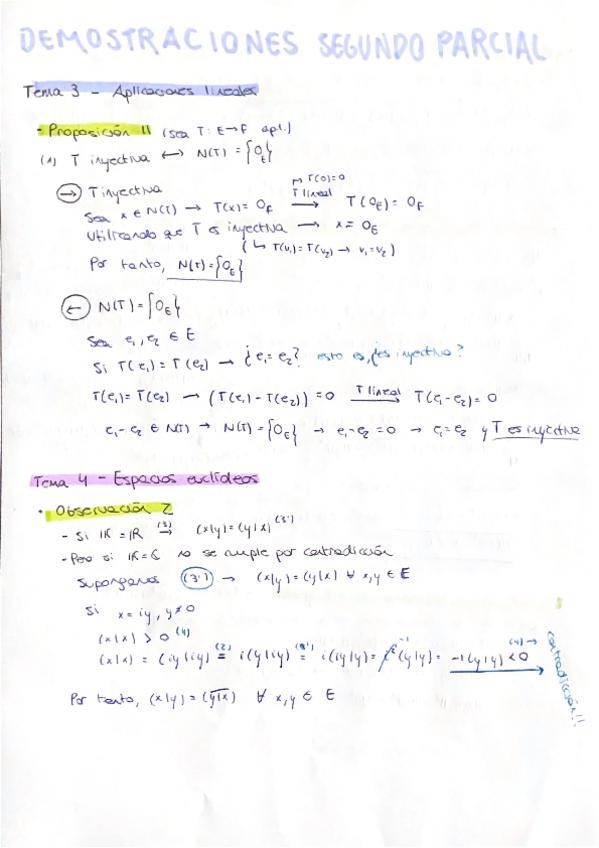 DEMOSTRACIONES SEGUNDO PARCIAL
Tema 3 - Aplicaciones lineales
- Proposición 11 (sea T: E→F apl.)
(1) T inyectiva ↔ N(T) = {0_E}
(→) T inyectiva
Sea x ∈ N(T) → T(x) = 0_F →(T lineal, T(0)=0) T(0_E) = 0_F
Utilizando que T es inyectiva → x = 0_E
(↳ T(v₁) = T(v₂) → v₁ = v₂)
Por tanto, N(T) = {0_E}
(←) N(T) = {0_E}
Sea e₁, e₂ ∈ E
Si T(e₁) = T(e₂) → ¿e₁ = e₂? esto es, ¿es inyectiva?
T(e₁) = T(e₂) → (T(e₁) - T(e₂)) = 0 →(T lineal) T(e₁ - e₂) = 0
e₁ - e₂ ∈ N(T) → N(T) = {0_E} → e₁ - e₂ = 0 → e₁ = e₂ y T es inyectiva
Tema 4 - Espacios euclídeos
· Observación 2
- Si IK = IR →(3) (x|y) = (y|x) (3')
- Pero si IK = C no se cumple por contradicción
Supongamos (3') → (x|y) = (y|x) ∀ x,y ∈ E
Si x = iy, y ≠ 0
(x|x) > 0 (4)
(x|x) = (iy|iy) =(2) i(y|iy) =(3') i(iy|y) = i²(y|y) = -1(y|y) < 0 (4) → contradicción!!
Por tanto, (x|y) = \overline{(y|x)} ∀ x,y ∈ E